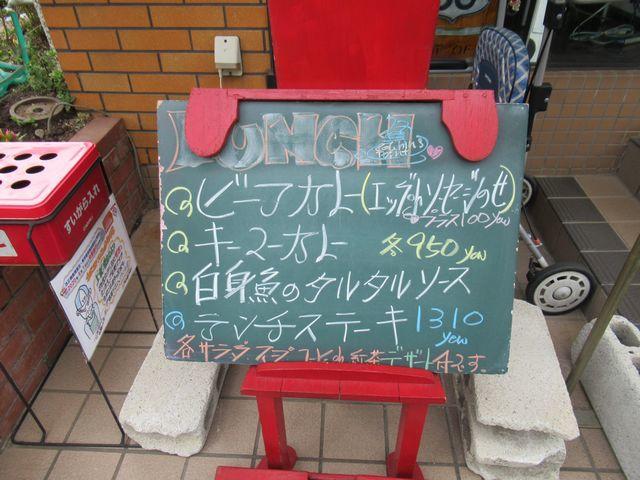 LUNCH
ビーフカレー(エッグ、ソーセージのせ)
プラス100yen
キーマーカレー 各950yen
白身魚のタルタルソース
テンチステーキ 1310
yen
各サラダ スープ コーヒor紅茶 デザート付です。
すいがら入れ
66